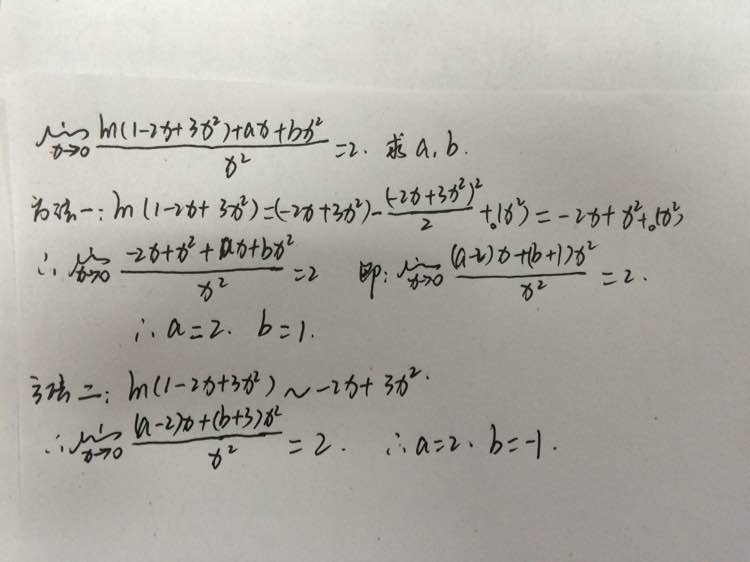 lim x→0 (ln(1-2x+3x²)+ax+bx²)/x² =2. 求a,b.
方法一: ln(1-2x+3x²)=(-2x+3x²)-(-2x+3x²)²/2+o(x²)=-2x+x²+o(x²)
∴ lim x→0 (-2x+x²+ax+bx²)/x² =2 即: lim x→0 ((a-2)x+(b+1)x²)/x² =2.
∴ a=2. b=1.
方法二: ln(1-2x+3x²)~-2x+3x².
∴ lim x→0 ((a-2)x+(b+3)x²)/x² =2. ∴a=2. b=-1.